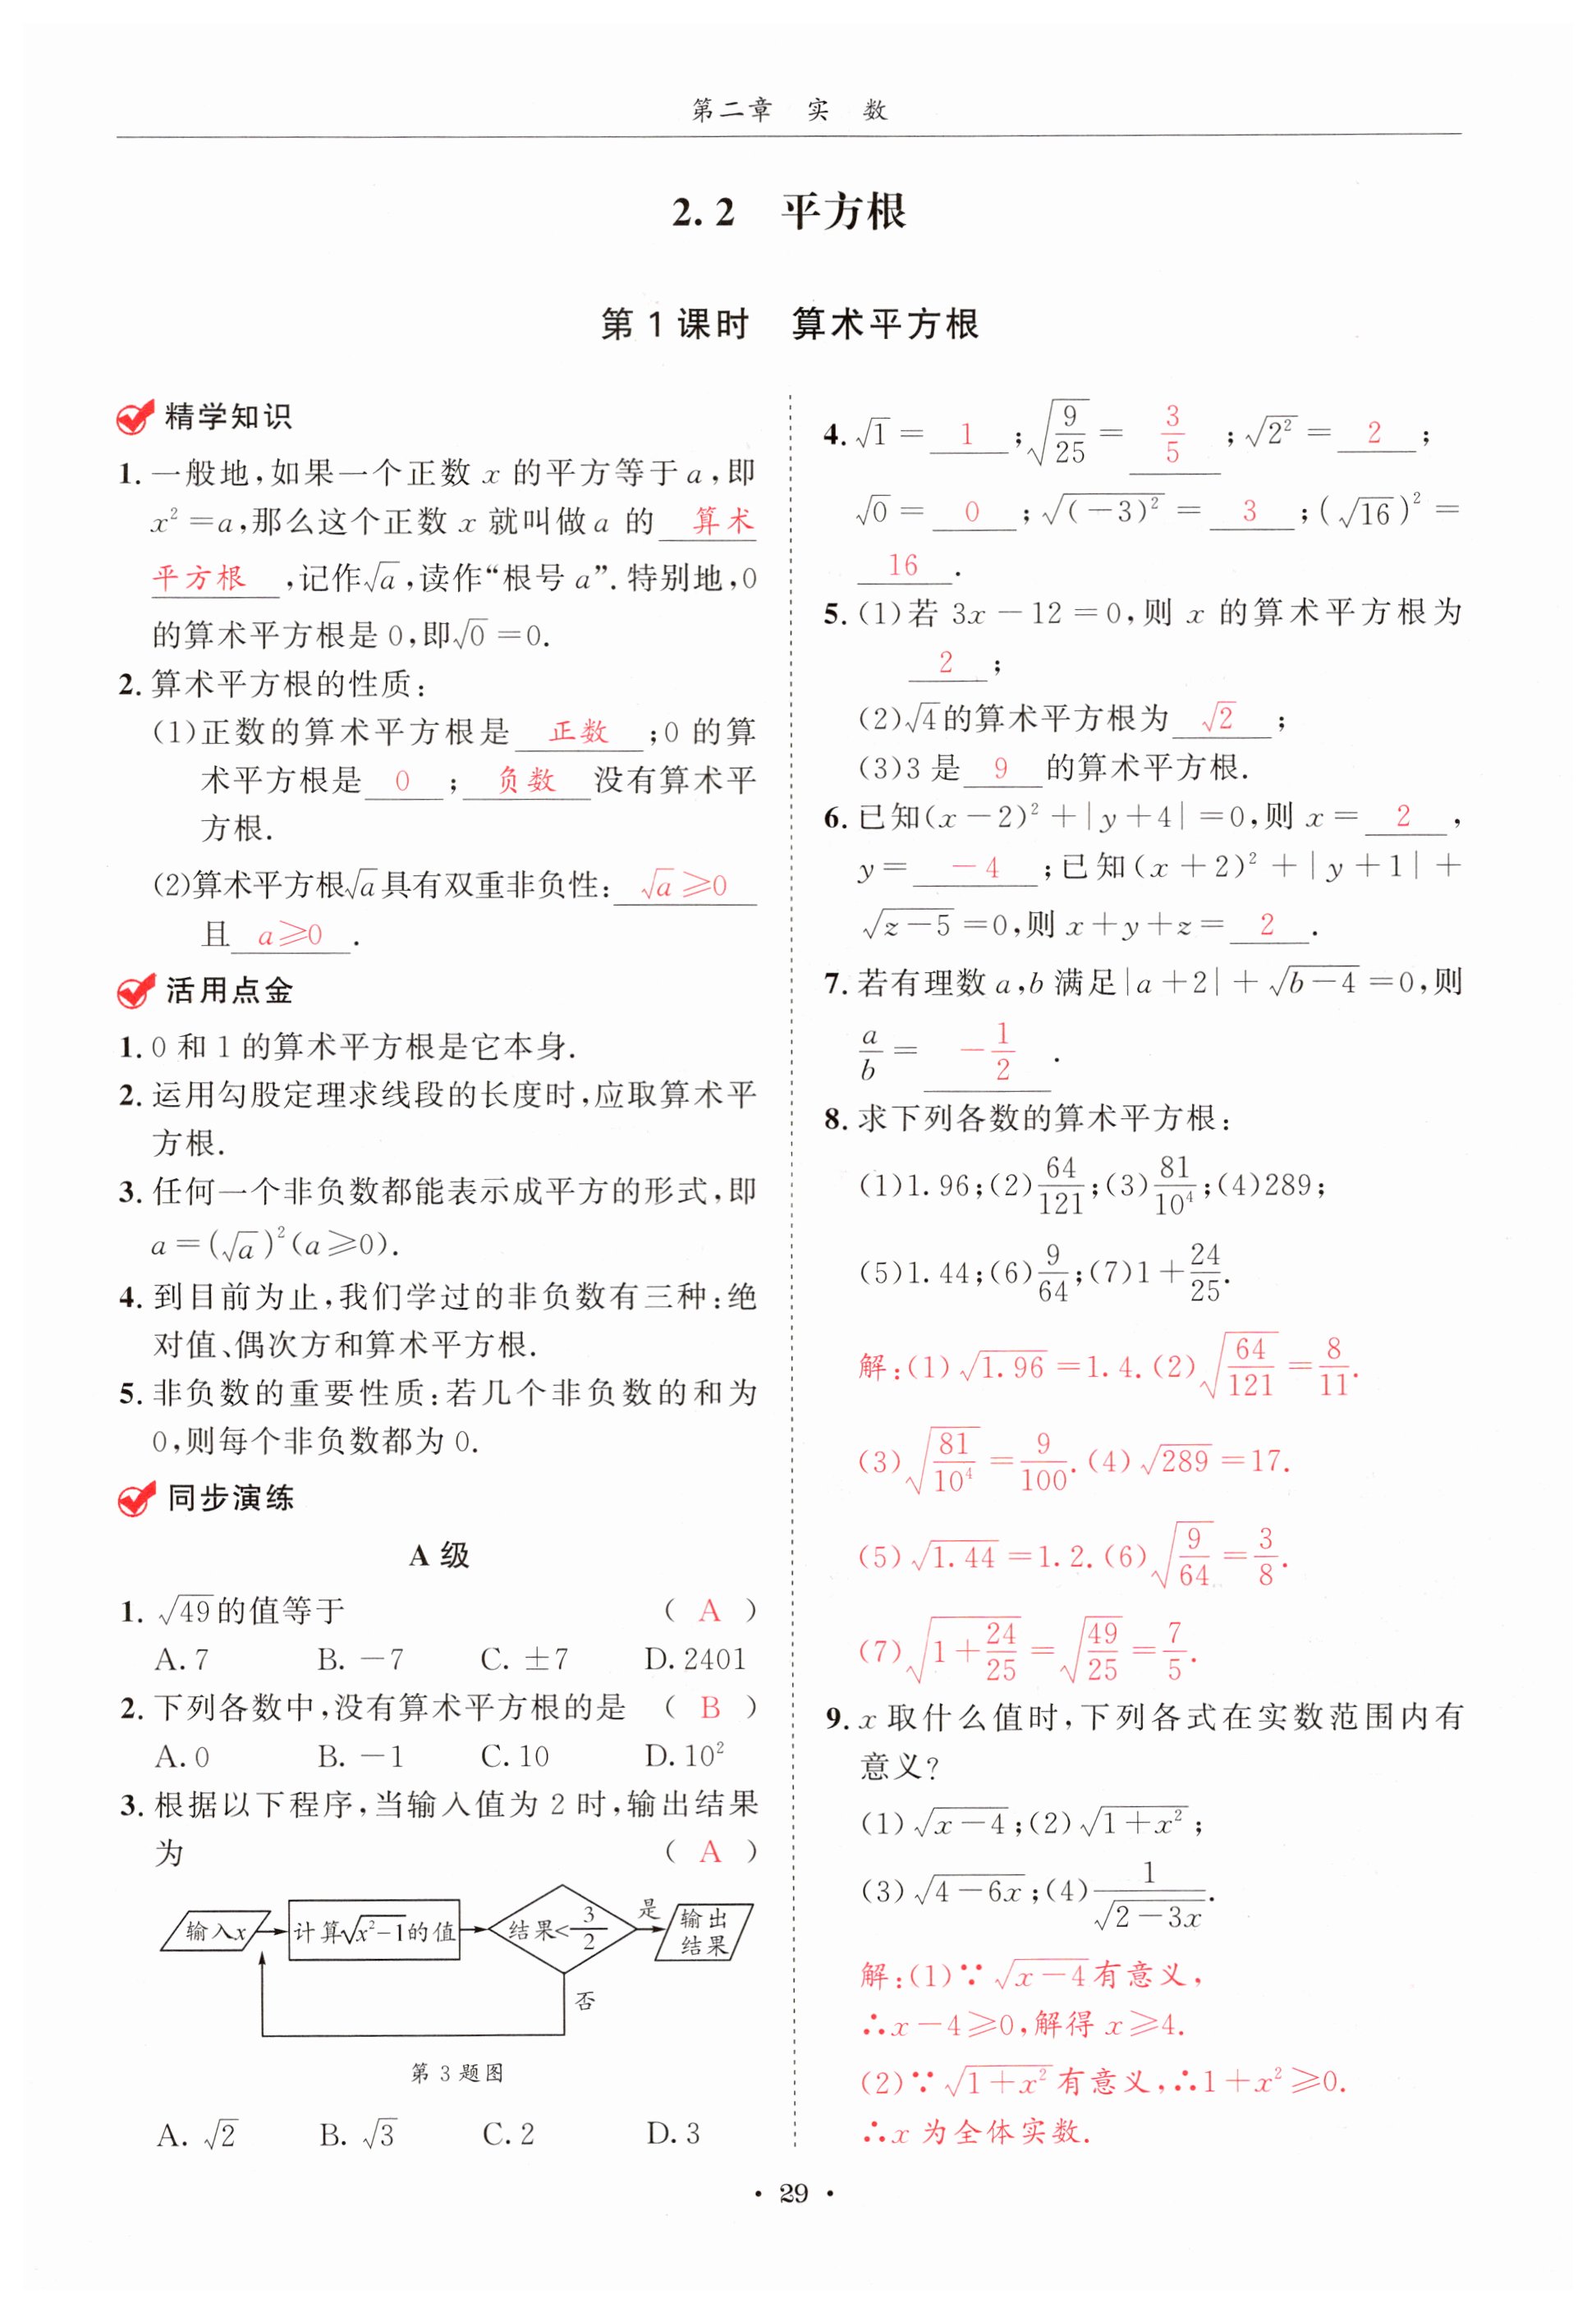 第二章 实 数
2.2 平方根
第1课时 算术平方根
精学知识
1. 一般地,如果一个正数 x 的平方等于 a,即
x²=a,那么这个正数 x 就叫做 a 的 算术
平方根 ,记作√a,读作“根号 a”. 特别地,0
的算术平方根是 0,即√0=0.
2. 算术平方根的性质:
(1)正数的算术平方根是 正数 ;0 的算
术平方根是 0 ; 负数 没有算术平
方根.
(2)算术平方根√a具有双重非负性: √a≥0
且 a≥0 .
活用点金
1. 0 和 1 的算术平方根是它本身.
2. 运用勾股定理求线段的长度时,应取算术平
方根.
3. 任何一个非负数都能表示成平方的形式,即
a=(√a)²(a≥0).
4. 到目前为止,我们学过的非负数有三种:绝
对值、偶次方和算术平方根.
5. 非负数的重要性质:若几个非负数的和为
0,则每个非负数都为 0.
同步演练
A 级
1. √49的值等于 ( A )
A. 7 B. －7 C. ±7 D. 2401
2. 下列各数中,没有算术平方根的是 ( B )
A. 0 B. －1 C. 10 D. 10²
3. 根据以下程序,当输入值为 2 时,输出结果
为 ( A )
输入x 计算√(x²-1)的值 结果<3/2 是 输出
结果
否
第 3 题图
A. √2 B. √3 C. 2 D. 3
4. √1= 1 ;√(9/25)= 3/5 ;√(2²)= 2 ;
√0= 0 ;√((－3)²)= 3 ;(√16)²=
16 .
5. (1)若 3x－12=0,则 x 的算术平方根为
2 ;
(2)√4的算术平方根为 √2 ;
(3)3 是 9 的算术平方根.
6. 已知(x－2)²＋|y＋4|=0,则 x= 2 ,
y= －4 ;已知(x＋2)²＋|y＋1|＋
√(z－5)=0,则 x＋y＋z= 2 .
7. 若有理数 a,b 满足|a＋2|＋√(b－4)=0,则
a/b= －1/2 .
8. 求下列各数的算术平方根:
(1)1.96;(2)64/121;(3)81/10⁴;(4)289;
(5)1.44;(6)9/64;(7)1＋24/25.
解:(1)√1.96=1.4.(2)√(64/121)=8/11.
(3)√(81/10⁴)=9/100.(4)√289=17.
(5)√1.44=1.2.(6)√(9/64)=3/8.
(7)√(1＋24/25)=√(49/25)=7/5.
9. x 取什么值时,下列各式在实数范围内有
意义?
(1)√(x－4);(2)√(1＋x²);
(3)√(4－6x);(4)1/√(2－3x).
解:(1)∵√(x－4)有意义,
∴x－4≥0,解得 x≥4.
(2)∵√(1＋x²)有意义,∴1＋x²≥0.
∴x 为全体实数.
· 29 ·